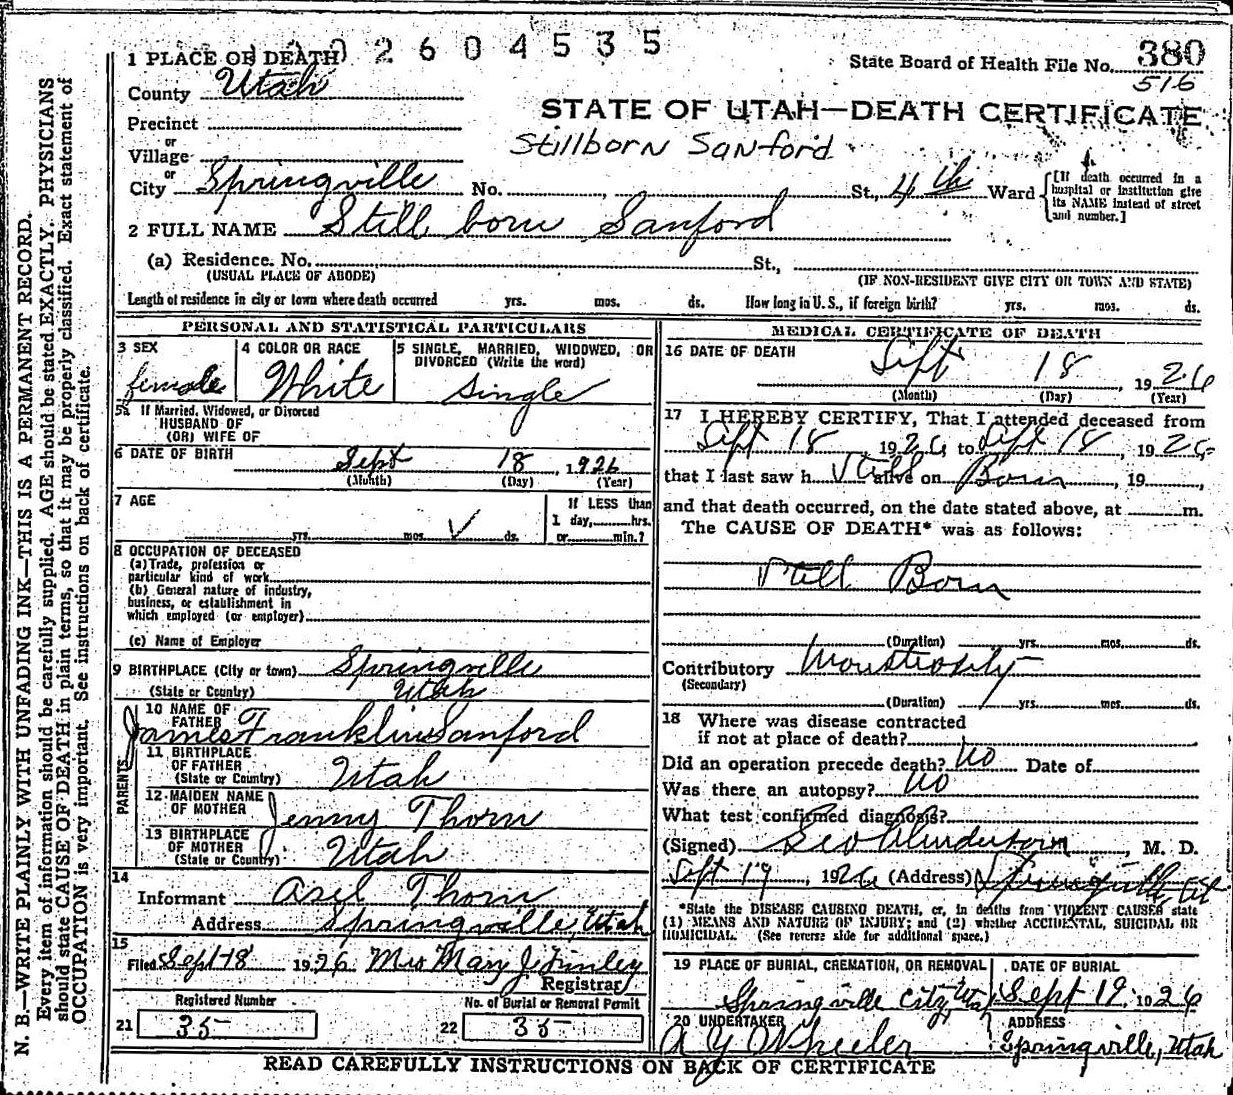 2604535
1 PLACE OF DEATH
State Board of Health File No. 380
516
County Utah
STATE OF UTAH—DEATH CERTIFICATE
Precinct
or
Village
Stillborn Sanford
or
City Springville No. , St., 4th Ward
[If death occurred in a
hospital or institution give
its NAME instead of street
and number.]
2 FULL NAME Still born Sanford
(a) Residence. No. St.,
(USUAL PLACE OF ABODE) (IF NON-RESIDENT GIVE CITY OR TOWN AND STATE)
Length of residence in city or town where death occurred yrs. mos. ds. How long in U. S., if foreign birth? yrs. mos. ds.
PERSONAL AND STATISTICAL PARTICULARS
3 SEX
female
4 COLOR OR RACE
White
5 SINGLE, MARRIED, WIDOWED, OR
DIVORCED (Write the word)
Single
5a If Married, Widowed, or Divorced
HUSBAND OF
(OR) WIFE OF
6 DATE OF BIRTH Sept 18, 1926
(Month) (Day) (Year)
7 AGE
yrs. mos. ds.
If LESS than
1 day, hrs.
or min.?
8 OCCUPATION OF DECEASED
(a) Trade, profession or
particular kind of work
(b) General nature of industry,
business, or establishment in
which employed (or employer)
(c) Name of Employer
9 BIRTHPLACE (City or town) Springville
(State or Country) Utah
PARENTS
10 NAME OF
FATHER
James Franklin Sanford
11 BIRTHPLACE
OF FATHER
(State or Country) Utah
12 MAIDEN NAME
OF MOTHER Jenny Thorn
13 BIRTHPLACE
OF MOTHER
(State or Country) Utah
14
Informant Asel Thorn
Address Springville, Utah
15
Filed Sept 18 1926 Mrs Mary J Finley
Registrar
Registered Number
21 35
No. of Burial or Removal Permit
22 35
MEDICAL CERTIFICATE OF DEATH
16 DATE OF DEATH
Sept 18, 1926
(Month) (Day) (Year)
17 I HEREBY CERTIFY, That I attended deceased from
Sept 18 1926, to Sept 18, 1926
that I last saw h Still alive on Born, 19 ,
and that death occurred, on the date stated above, at m.
The CAUSE OF DEATH* was as follows:
Still Born
(Duration) yrs. mos. ds.
Contributory Monstrosity
(Secondary)
(Duration) yrs. mos. ds.
18 Where was disease contracted
if not at place of death?
Did an operation precede death? No Date of
Was there an autopsy? No
What test confirmed diagnosis?
(Signed) Geo Anderson, M. D.
Sept 19, 1926 (Address) Springville, Ut
*State the DISEASE CAUSING DEATH, or, in deaths from VIOLENT CAUSES state
(1) MEANS AND NATURE OF INJURY; and (2) whether ACCIDENTAL, SUICIDAL OR
HOMICIDAL. (See reverse side for additional space.)
19 PLACE OF BURIAL, CREMATION, OR REMOVAL
Springville City, Uta
DATE OF BURIAL
Sept 19, 1926
20 UNDERTAKER
A Y Wheeler
ADDRESS
Springville, Utah
READ CAREFULLY INSTRUCTIONS ON BACK OF CERTIFICATE
N. B.—WRITE PLAINLY WITH UNFADING INK—THIS IS A PERMANENT RECORD.
Every item of information should be carefully supplied. AGE should be stated EXACTLY. PHYSICIANS
should state CAUSE OF DEATH in plain terms, so that it may be properly classified. Exact statement of
OCCUPATION is very important. See instructions on back of certificate.